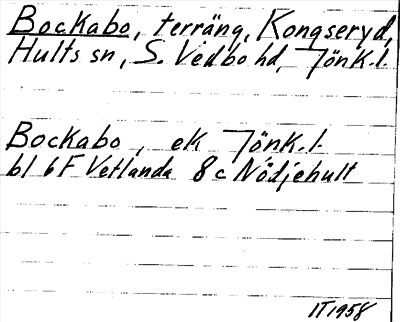 Bockabo, terräng, Kongseryd,
Hults sn, S. Vedbo hd, Jönk. l.
Bockabo, ek Jönk. l.
bl 6F Vetlanda 8c Nödjehult
IT 1958